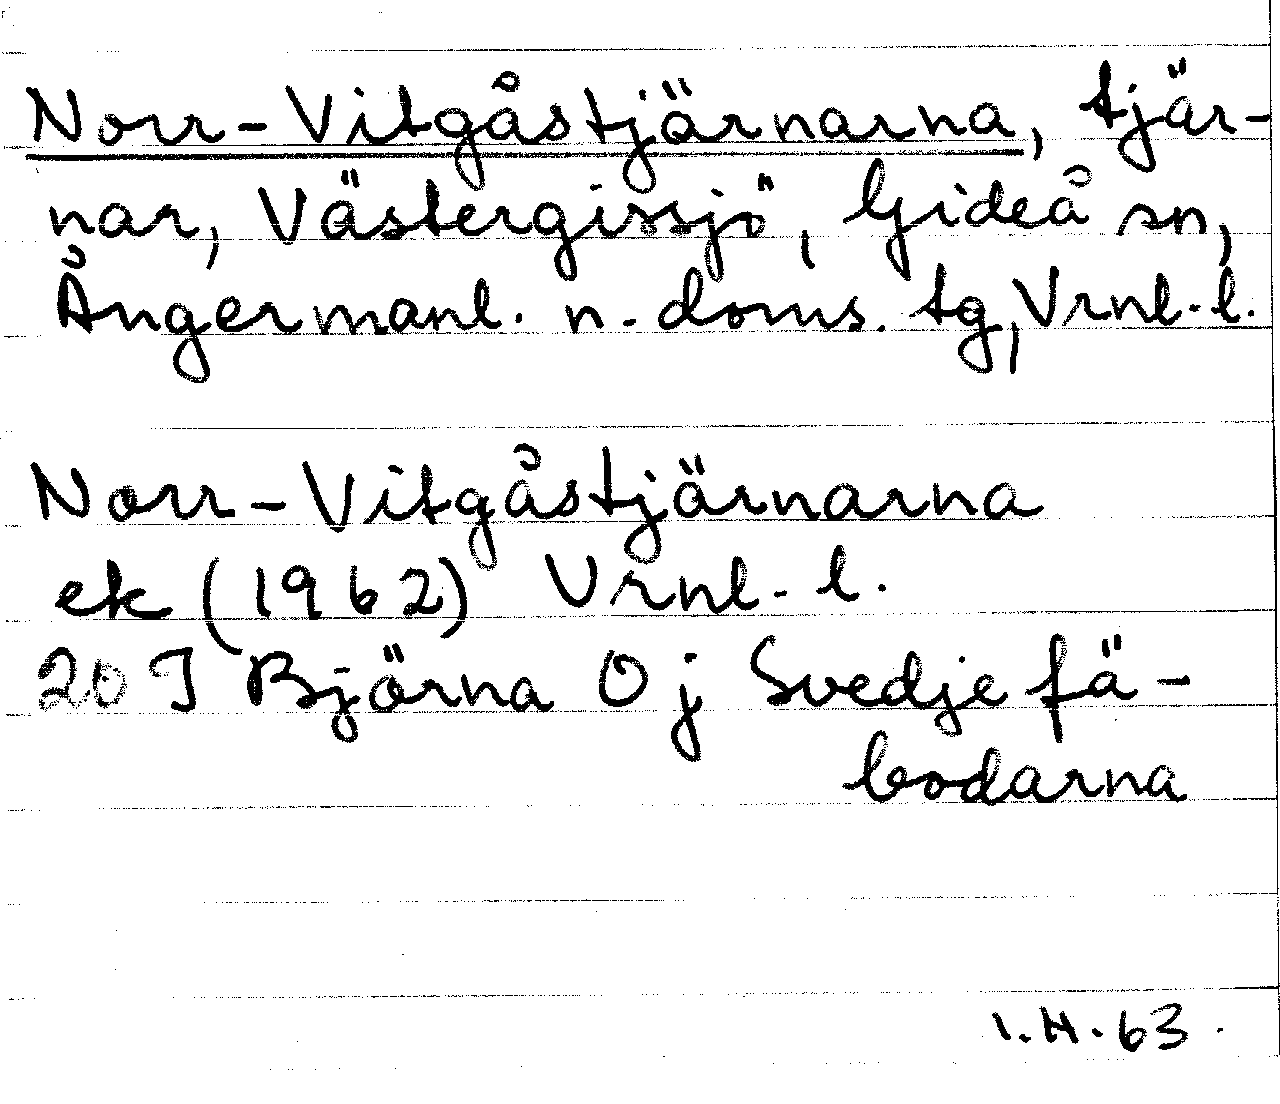 Norr-Vitgåstjärnarna, tjär-
nar, Västergissjö, Gideå sn,
Ångermanl. n. doms. tg, Vrnl. l.
Norr-Vitgåstjärnarna
ek (1962) Vrnl. l.
20 I Björna O j Svedje fä-
bodarna
I.H.63.